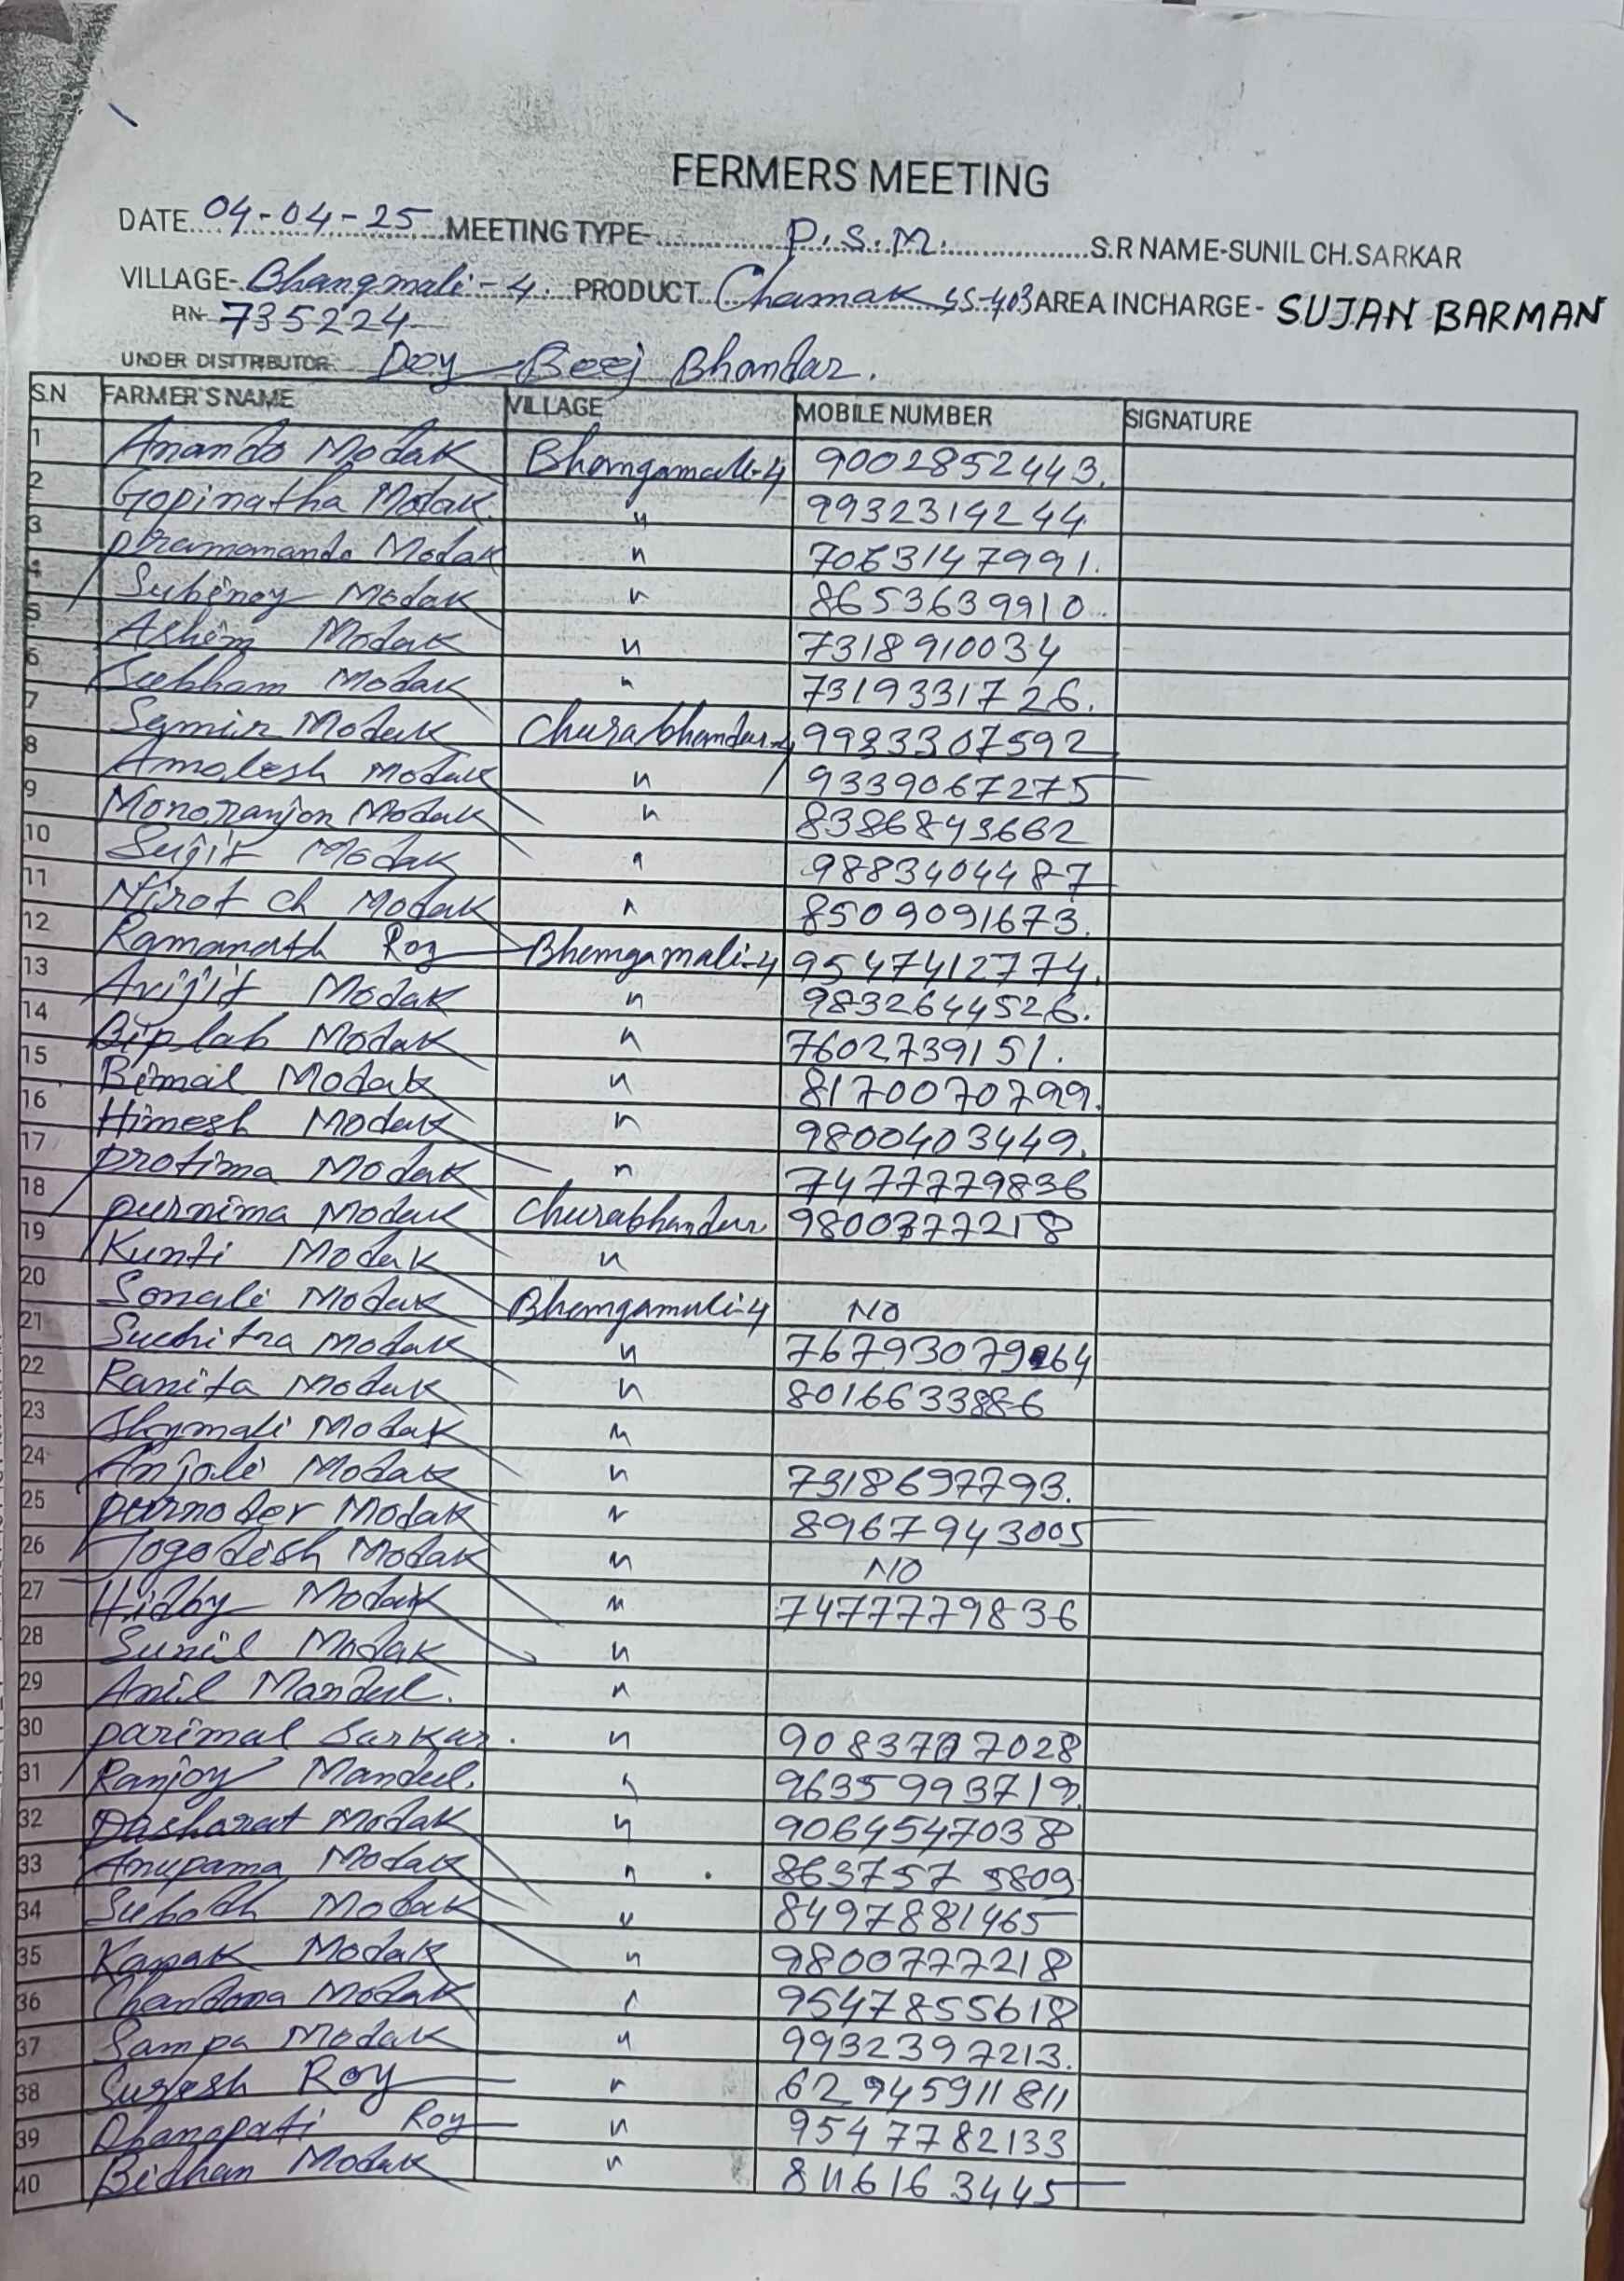 FERMERS MEETING
DATE 04-04-25 MEETING TYPE- P.S.M. S.R NAME-SUNIL CH.SARKAR
VILLAGE- Bhangmali-4. PRODUCT Chamak SS-403 AREA INCHARGE- SUJAN BARMAN
PIN- 735224
UNDER DISTTRIBUTOR Dey Beej Bhandar.
S.N FARMER'S NAME VILLAGE MOBILE NUMBER SIGNATURE
1 Anando Modak Bhangamali-4 9002852443.
2 Gopinatha Modak. " 9932314244
3 Modak " 7063147991.
4 Subinoy Modak " 8653639910.
5 Ashim Modak " 7318910034
6 Subham Modak " 7319331726.
7 Samir Modak Churabhandar-4 9983307592
8 Amolesh Modak " 9339067275
9 Monoranjon Modak " 8386843662
10 Sujit Modak " 9883404487
11 Nirot ch Modak " 8509091673.
12 Ramanath Roy Bhemgamali-4 9547412774.
13 Avijit Modak " 9832644526.
14 Biplab Modak " 7602739151.
15 Bimal Modak " 8170070799.
16 Himesh Modak " 9800403449.
17 Protima Modak " 7477779836
18 purnima Modak Churabhandar 9800377218
19 Kunti Modak "
20 Sonali Modak Bhemgamali-4 NO
21 Suchitra Modak "
22 Ranita Modak " 8016633886
23 Shymali Modak "
24 Anjali Modak " 7318697793.
25 Modak " 8967943005
26 Jogodish Modak " NO
27 Modak " 7477779836
28 Sunil Modak "
29 Anil Mandal. "
30 parimal Sarkar. "
31 Ranjoy Mandal. "
32 Dasharat Modak " 9064547038
33 Anupama Modak "
34 Subodh Modak " 8497881465
35 Kanak Modak " 9800777218
36 Chandona Modak " 9547855618
37 Sampa Modak " 9932397213.
38 Suresh Roy " 62945911811
39 Dhanopati Roy " 9547782133
40 Bidhan Modak " 8116163445